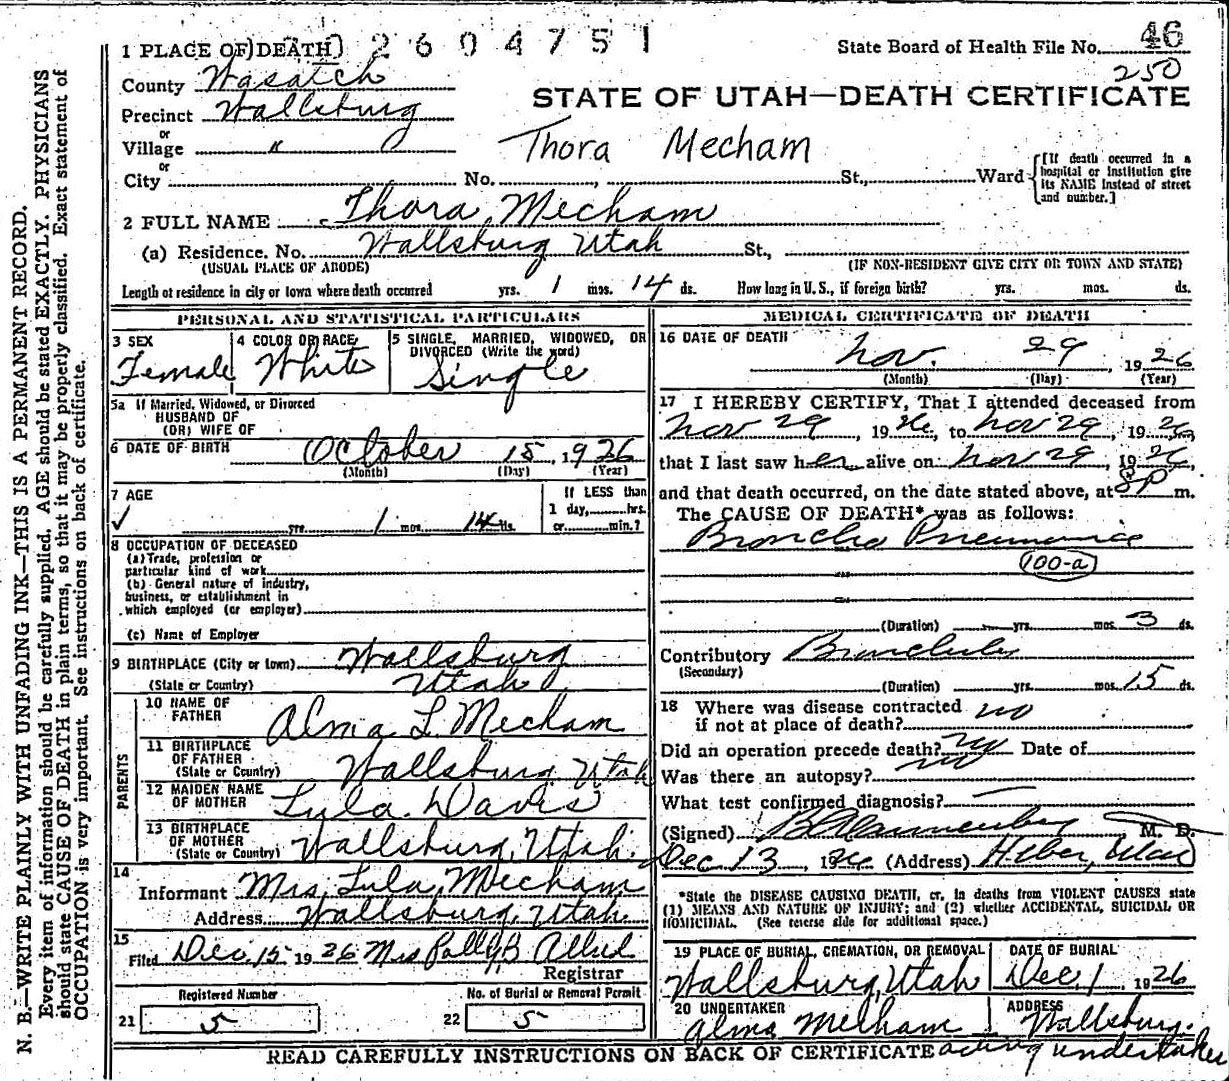 1 PLACE OF DEATH 2604751 State Board of Health File No. 46
250
County Wasatch
STATE OF UTAH—DEATH CERTIFICATE
Precinct Wallsburg
or
Village " Thora Mecham
or
City No. , St., Ward [If death occurred in a hospital or institution give its NAME instead of street and number.]
2 FULL NAME Thora Mecham
(a) Residence. No. Wallsburg Utah St.,
(USUAL PLACE OF ABODE) (IF NON-RESIDENT GIVE CITY OR TOWN AND STATE)
Length of residence in city or town where death occurred yrs. 1 mos. 14 ds. How long in U. S., if foreign birth? yrs. mos. ds.
PERSONAL AND STATISTICAL PARTICULARS
3 SEX 4 COLOR OR RACE 5 SINGLE, MARRIED, WIDOWED, OR DIVORCED (Write the word)
Female White Single
5a If Married, Widowed, or Divorced
HUSBAND OF
(OR) WIFE OF
6 DATE OF BIRTH October 15, 1926
(Month) (Day) (Year)
7 AGE If LESS than
1 day, hrs.
yrs. 1 mos. 14 ds. or min.?
8 OCCUPATION OF DECEASED
(a) Trade, profession or
particular kind of work
(b) General nature of industry,
business, or establishment in
which employed (or employer)
(c) Name of Employer
9 BIRTHPLACE (City or town) Wallsburg
(State or Country) Utah
PARENTS
10 NAME OF FATHER Alma L. Mecham
11 BIRTHPLACE OF FATHER (State or Country) Wallsburg Utah
12 MAIDEN NAME OF MOTHER Lula Davis
13 BIRTHPLACE OF MOTHER (State or Country) Wallsburg, Utah.
14
Informant Mrs. Lula Mecham
Address Wallsburg, Utah.
15
Filed Dec. 15 1926 Mrs Polly B Allred
Registrar
Registered Number No. of Burial or Removal Permit
21 5 22 5
MEDICAL CERTIFICATE OF DEATH
16 DATE OF DEATH Nov. 29, 1926
(Month) (Day) (Year)
17 I HEREBY CERTIFY, That I attended deceased from
Nov 29, 1926, to Nov 29, 1926,
that I last saw her alive on Nov 29, 1926,
and that death occurred, on the date stated above, at 8P m.
The CAUSE OF DEATH* was as follows:
Broncho Pneumonia
100-a
(Duration) yrs. mos. 3 ds.
Contributory Bronchitis
(Secondary)
(Duration) yrs. mos. 15 ds.
18 Where was disease contracted
if not at place of death? no
Did an operation precede death? no Date of
Was there an autopsy? no
What test confirmed diagnosis?
(Signed) M. D.
Dec 13, 1926 (Address) Heber, Utah
*State the DISEASE CAUSING DEATH, or, in deaths from VIOLENT CAUSES state
(1) MEANS AND NATURE OF INJURY; and (2) whether ACCIDENTAL, SUICIDAL OR
HOMICIDAL. (See reverse side for additional space.)
19 PLACE OF BURIAL, CREMATION, OR REMOVAL DATE OF BURIAL
Wallsburg, Utah Dec. 1, 1926
20 UNDERTAKER ADDRESS
Alma Mecham Wallsburg.
READ CAREFULLY INSTRUCTIONS ON BACK OF CERTIFICATE acting undertaker
N. B.—WRITE PLAINLY WITH UNFADING INK—THIS IS A PERMANENT RECORD.
Every item of information should be carefully supplied. AGE should be stated EXACTLY. PHYSICIANS
should state CAUSE OF DEATH in plain terms, so that it may be properly classified. Exact statement of
OCCUPATION is very important. See instructions on back of certificate.